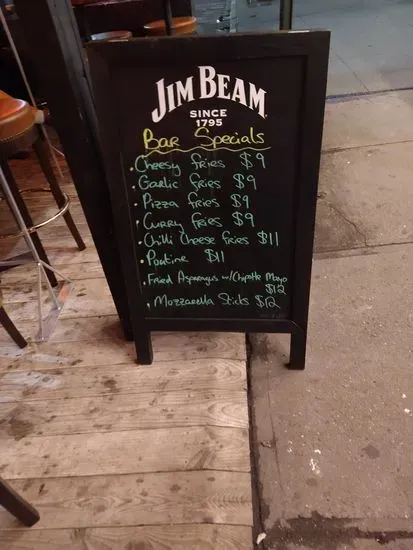 JIM BEAM
SINCE
1795
Bar Specials
• Cheesy fries $9
• Garlic fries $9
• Pizza fries $9
• Curry fries $9
• Chilli Cheese fries $11
• Poutine $11
• Fried Asparagus w/Chipotle Mayo
$12
• Mozzarella Sticks $12